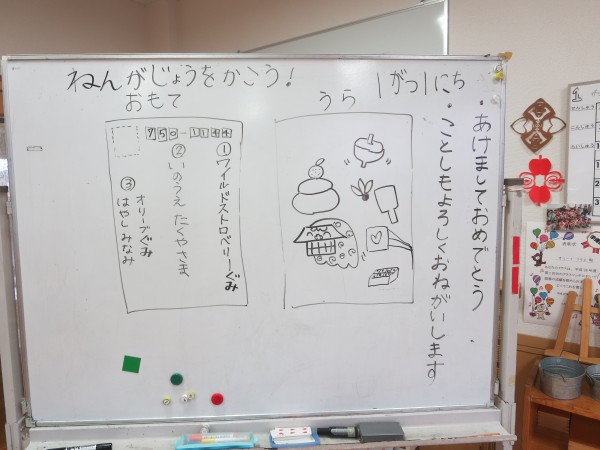 ねんがじょうをかこう!
おもて
うら
1がつ1にち
・あけましておめでとう
・ことしもよろしくおねがいします
750-1144
①ワイルドストロベリーぐみ
②いのうえ たくやさま
③オリーブぐみ
はやしみなみ